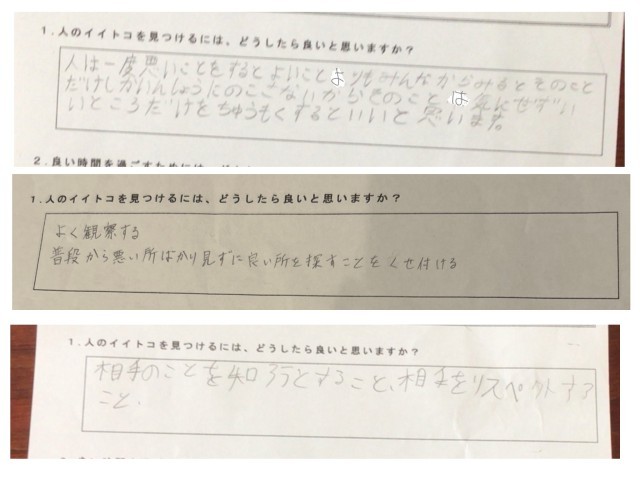 1.人のイイトコを見つけるには、どうしたら良いと思いますか？
人は一度悪いことをするとよいことよりもみんなからみるとそのこと
だけしかいんしょうにのこさないからそのことは気にせずい
いところだけをちゅうもくするといいと思います。
2.良い時間を過ごすためには、
1.人のイイトコを見つけるには、どうしたら良いと思いますか？
よく観察する
普段から悪い所ばかり見ずに良い所を探すことをくせ付ける
1.人のイイトコを見つけるには、どうしたら良いと思いますか？
相手のことを知ろうとすること、相手をリスペクトする
こと、